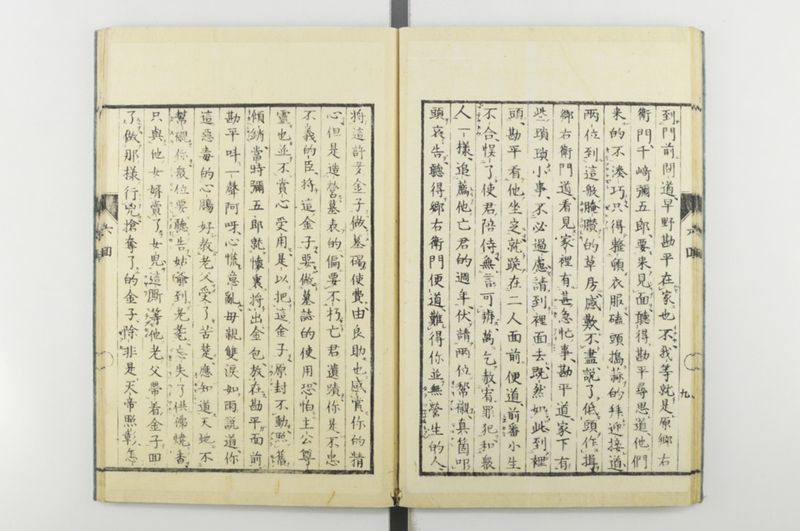 到門前問道早野勘平在家也不我等就是原鄉右
衛門千崎彌五郎要來見面聽得勘平尋思道他們
來的不湊巧只得整頭衣服磕頭搗蒜的拜迎接道
兩位到這般腌臢的草房感歎不盡說了低頭作揖
鄉右衛門道看見家裡有甚急忙事勘平道家下有
些瑣瑣小事不必過慮請到裡面去既然如此到裡
頭勘平看他坐定就跪在二人面前便道前番小生
不合悞了使君陪侍無言可辨萬乞赦宥罪犯和眾
人一樣追薦他亡君的週年伏請兩位幫襯真箇叩
頭哀告聽得鄉右衛門便道難得你並無營生的人
將這許多金子做墓碣使費由良助也感賞你的精
心但是造營墓表的偏要不朽亡君遺蹟你是不忠
不義的臣將這金子要做墓誌的使用恐怕主公尊
靈也並不賞心受用是以把這金子原封不動照舊
傾納當時彌五郎就懷裏將出金包放在勘平面前
勘平呌一聲阿呀心慌意亂母親雙淚如雨說道你
這惡毒的心腸好教老人受了苦楚應知道天地不
幫襯你般位要聽告姑爺到老耄忘失了供佛燒香
只與他女婿賣了女兒這厮等他老父帶着金子回
了做那樣行兇搶奪了的金子除非是天帝照彰怎
六回
九
六回